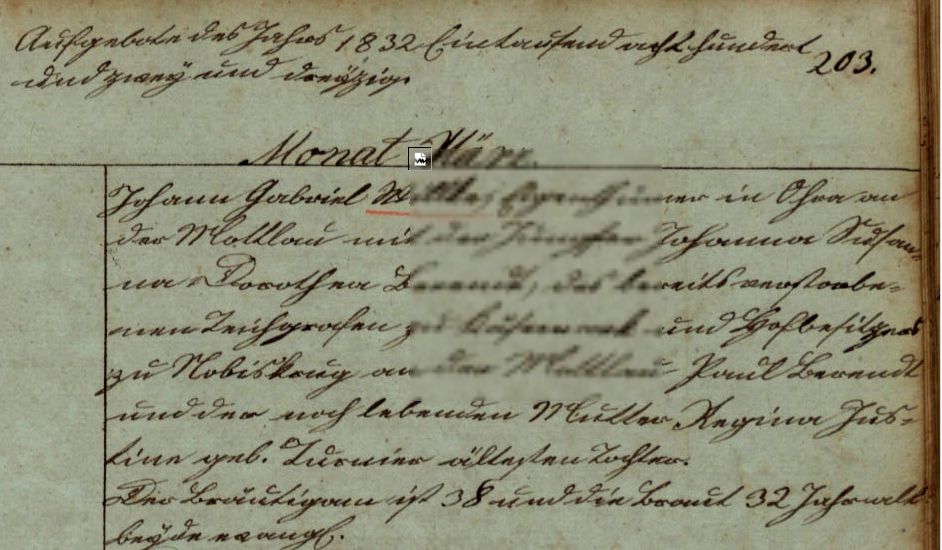 Aufgebote des Jahrs 1832 Eintausend acht hundert
und zwey und dreyzig.
203.
Monat März.
Johann Gabriel Eigenthümer in Ohra an
der Mottlau mit der Jungfer Johanna Susan¬
na Dorothea Berendt, des bereits verstorbe¬
nen Teichgrafen zu und Hofbesitzers
zu Nobiskrug an der Mottlau Paul Berendt
und der noch lebenden Mutter Regina Jus¬
tine geb. Turnier ältesten Tochter.
Der Bräutigam ist 38 und die Braut 32 Jahr alt
beyde evangl.